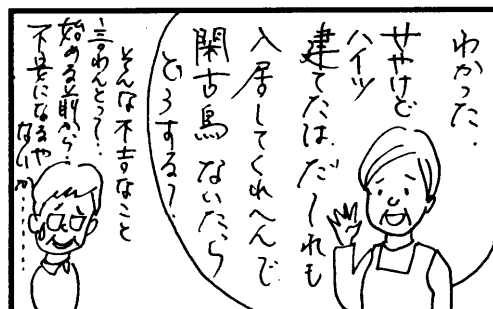 わかった.
せやけど
ハイツ
建てたは.だーれも
入居してくれへんで
閑古鳥 ないたら
どうする?
そんな不吉なこと
言わんとって..
始める前から..
不安になるや
ないか......